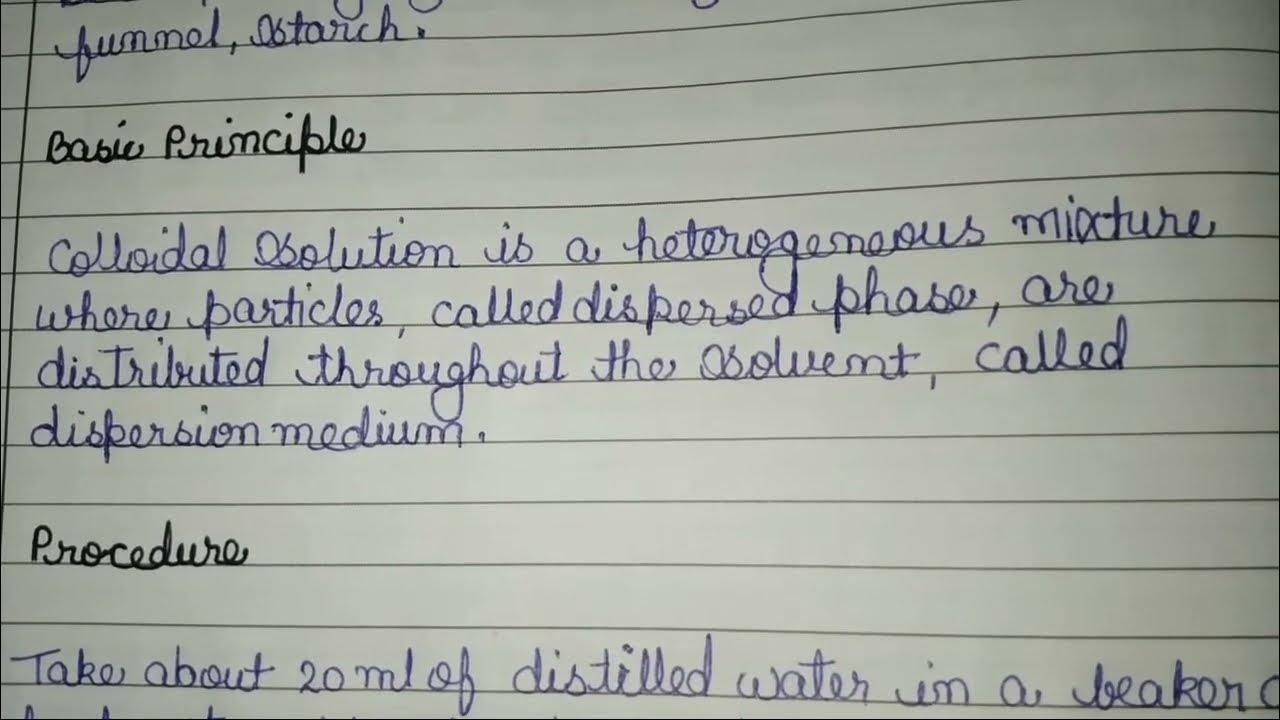 funnel, starch.
Basic Principle
Colloidal solution is a heterogeneous mixture
where particles, called dispersed phase, are
distributed throughout the solvent, called
dispersion medium.
Procedure
Take about 20 ml of distilled water in a beaker